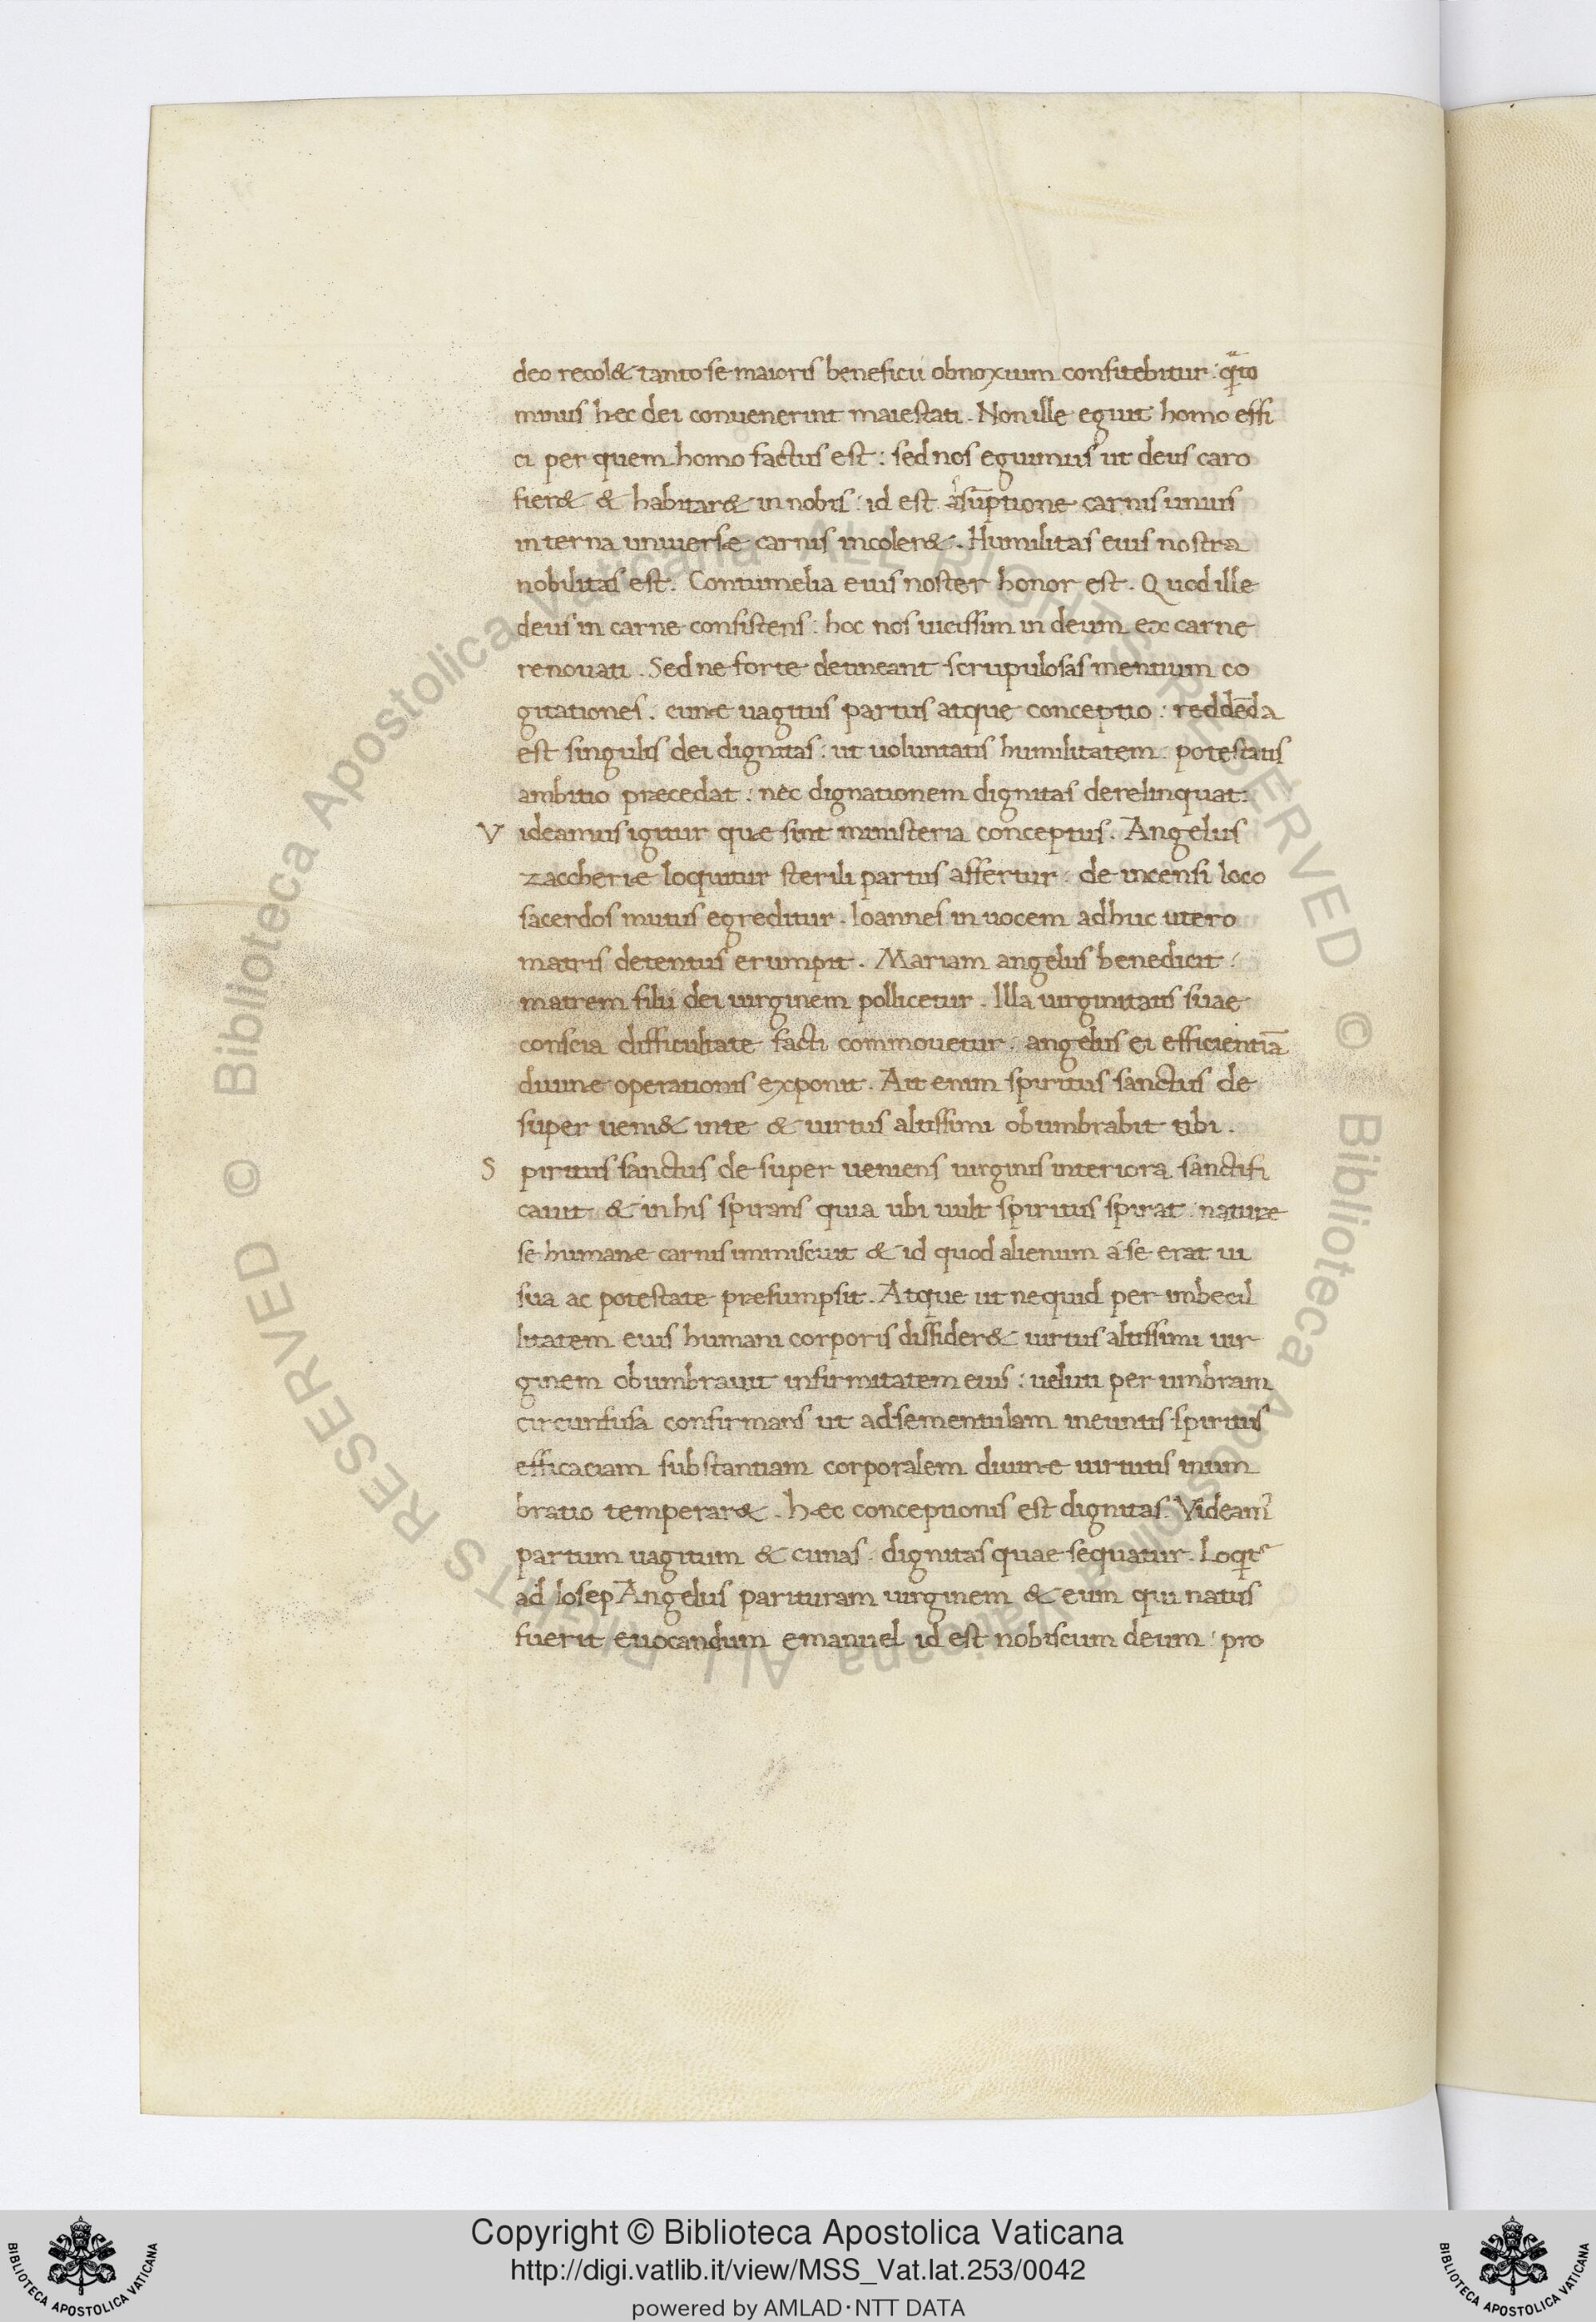 deo recol& tanto se maioris beneficii obnoxium confitebitur: q̃to
minus hæc dei conuenerint maiestati. Non ille eguit homo effi
ci per quem homo factus est: sed nos eguimus ut deus caro
fier& & habitar& in nobis: id est assũptione carnis unius
interna uniuersæ carnis incoler&. Humilitas eius nostra
nobilitas est. Contumelia eius noster honor est. Quod ille
deus in carne consistens: hoc nos uicissim in deum ex carne
renouati. Sed ne forte detineant scrupulosas mentium co
gitationes. cunæ uagitus partus atque conceptio: reddẽda
est singulis dei dignitas: ut uoluntatis humilitatem: potestatis
ambitio præcedat: nec dignationem dignitas derelinquat:
V ideamus igitur quæ sint ministeria conceptus. Angelus
zacchariæ loquitur sterili partus affertur: de incensi loco
sacerdos mutus egreditur. Ioannes in uocem adhuc utero
matris detentus erumpit. Mariam angelus benedicit:
matrem filii dei uirginem pollicetur. Illa uirginitatis suae
conscia difficultate facti commouetur: angelus ei efficientiã
diuine operationis exponit. Ait enim spiritus sanctus de
super ueni& in te & uirtus altissimi obumbrabit tibi.
S piritus sanctus de super ueniens uirginis interiora sanctifi
cauit & in his spirans quia ubi uult spiritus spirat: naturæ
se humanæ carnis immiscuit & id quod alienum á se erat ui
sua ac potestate præsumpsit. Atque ut ne quid per imbecil
litatem eius humani corporis dissider& uirtus altissimi uir
ginem obumbrauit infirmitatem eius: ueluti per umbram
circunfusa confirmans ut ad sementiulam ineuntis spiritus
efficaciam substantiam corporalem diuinæ uirtutis inum
bratio temperar&. hæc conceptionis est dignitas. Videam᷒
partum uagitum & cunas: dignitas quae sequatur. Loqt᷒
ad Iosep Angelus parituram uirginem & eum qui natus
fuerit euocandum emanuel id est nobiscum deum: pro
© Biblioteca Apostolica Vaticana ALL RIGHTS RESERVED © Biblioteca Apostolica Vaticana ALL RIGHTS RESERVED
Copyright © Biblioteca Apostolica Vaticana
http://digi.vatlib.it/view/MSS_Vat.lat.253/0042
powered by AMLAD·NTT DATA
BIBLIOTECA APOSTOLICA VATICANA
BIBLIOTECA APOSTOLICA VATICANA